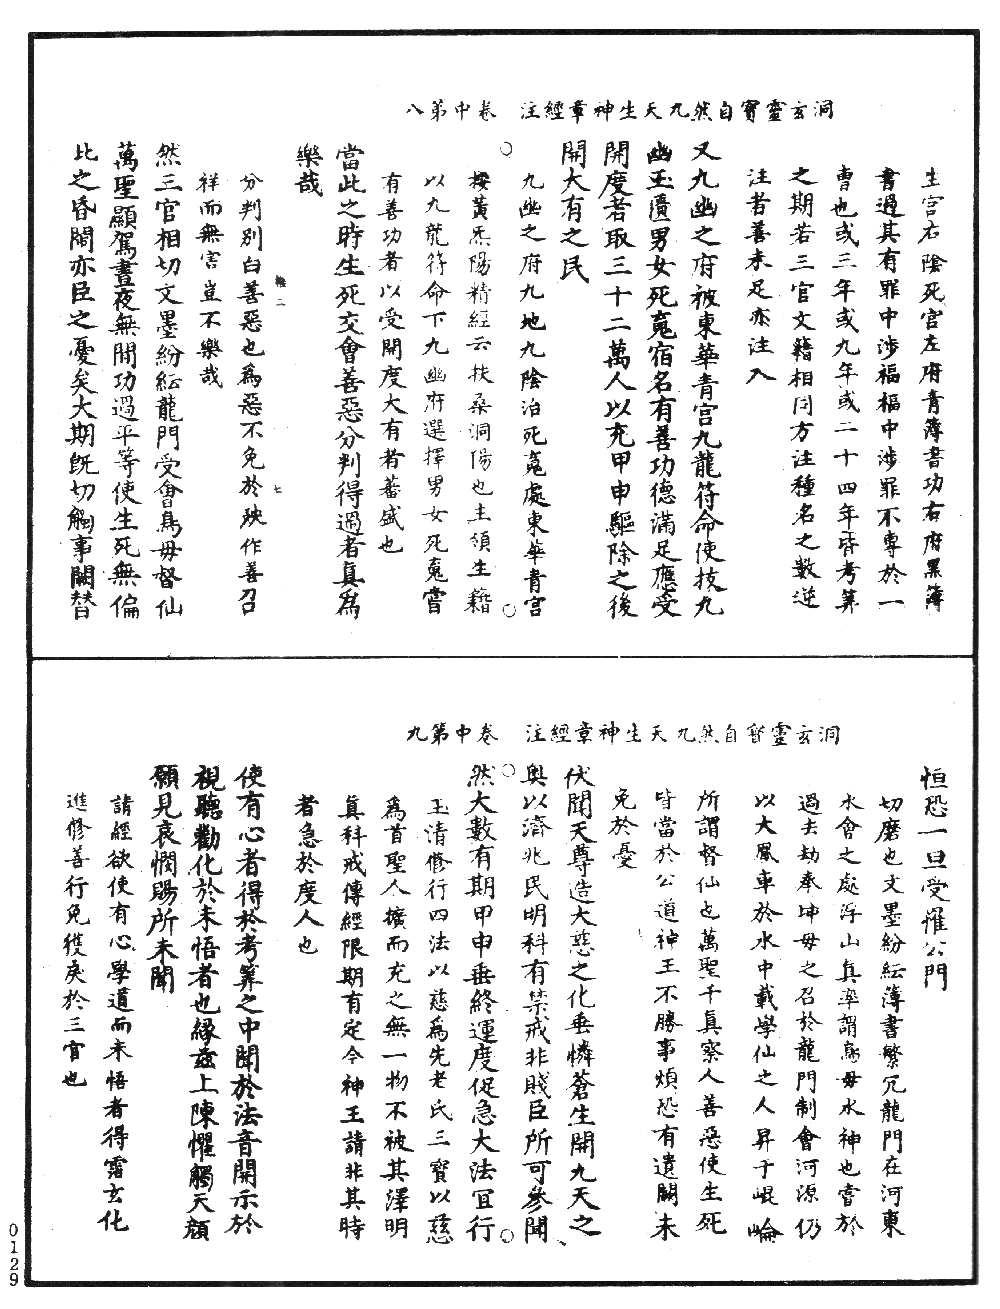 洞玄靈寶自然九天生神章經注　卷中第八
生宮右陰死宮左府青簿書功右府黑簿
書過其有罪中涉福福中涉罪不專於一
曹也或三年或九年或二十四年皆考筭
之期若三官文籍相同方注種名之數逆
注者善未足亦注入
又九幽之府被東華青宮九龍符命使拔九
幽玉匱男女死䰟宿名有善功德滿足應受
開度者取三十二萬人以充甲申驅除之後
開大有之民
九幽之府九地九陰治死䰟處東華青宮
按黃炁陽精經云扶桑洞陽也主領生籍
以九龍符命下九幽府選擇男女死䰟嘗
有善功者以受開度大有者蕃盛也
當此之時生死交會善惡分判得過者真為
樂哉
分判別白善惡也為惡不免於殃作善召
祥而無害豈不樂哉
然三官相切文墨紛紜龍門受會鳥母督仙
萬聖顯駕晝夜無閑功過平等使生死無偏
比之昏閙亦臣之憂矣大期既切觸事闕替
洞玄靈寶自然九天生神章經注　卷中第九
恒恐一旦受罹公門
切磨也文墨紛紜簿書繁冗龍門在河東
水會之處浮山真率謂鳥母水神也嘗於
過去劫奉坤母之召於龍門制會河源仍
以大風車於水中載學仙之人昇于崐崘
所謂督仙也萬聖千真察人善惡使生死
皆當於公道神王不勝事煩恐有遺闕未
免於憂
伏聞天尊造大慈之化垂憐蒼生開九天之
奧以濟兆民明科有禁戒非賤臣所可參聞
然大數有期甲申垂終運度促急大法宜行
玉清修行四法以慈為先老氏三寶以慈
為首聖人擴而充之無一物不被其澤明
真科戒傳經限期有定今神王請非其時
者急於度人也
使有心者得於考筭之中聞於法音開示於
視聽勸化於未悟者也緣茲上陳懼觸天顏
願見哀憫賜所未聞
請經欲使有心學道而未悟者得霑玄化
進修善行免獲戾於三官也
0129